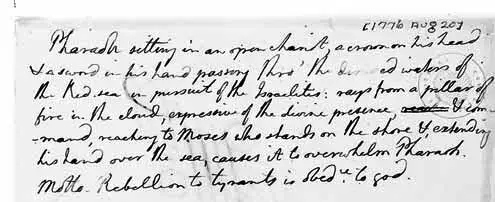 [1776 AUG 20]
Pharaoh sitting in an open chariot, a crown on his head
& a sword in his hand passing thro' the divided waters of
the Red sea in pursuit of the Israelites: rays from a pillar of
fire in the cloud, expressive of the divine presence, & com-
-mand, reaching to Moses who stands on the shore &, extending
his hand over the sea, causes it to overwhelm Pharaoh.
Motto. Rebellion to tyrants is obedce to god.